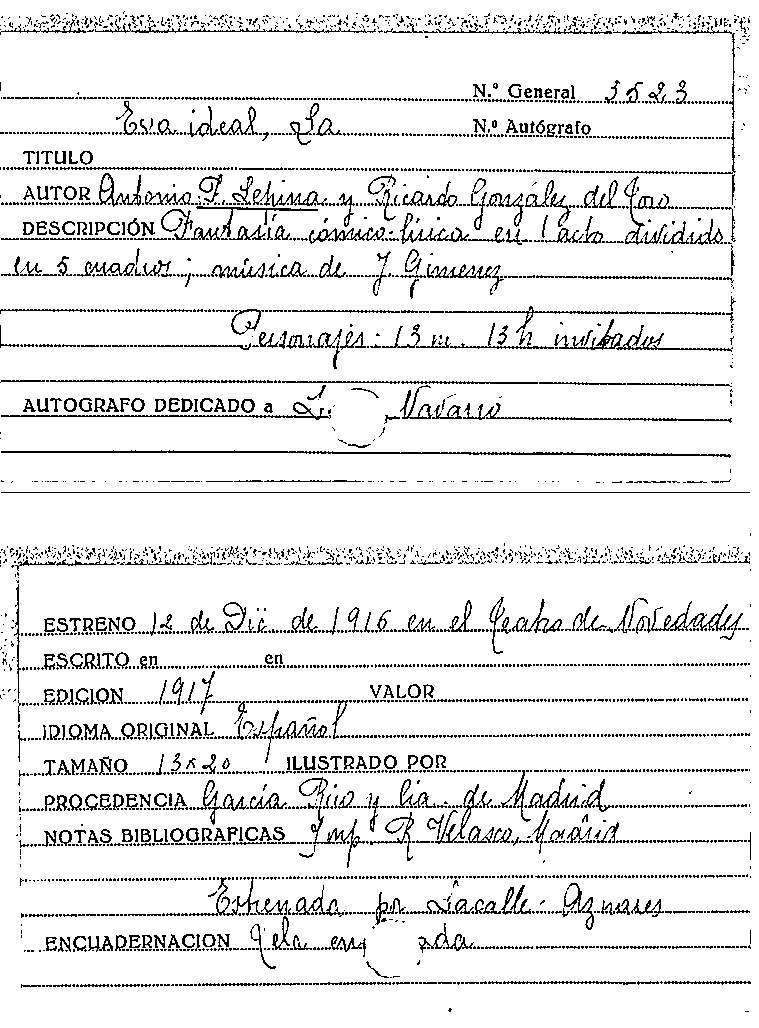 N.º General 3523
Eva ideal, La N.º Autógrafo
TITULO
AUTOR Antonio F. Lepina y Ricardo González del Toro
DESCRIPCIÓN Fantasía cómico-lírica en 1 acto dividido
en 5 cuadros; música de J Gimenez
Personajes: 13 m. 13 h invitados
AUTOGRAFO DEDICADO a Navarro
ESTRENO 12 de Dic. de 1916 en el Teatro de Novedades
ESCRITO en en
EDICION 1917 VALOR
IDIOMA ORIGINAL Español
TAMAÑO 13x20 ILUSTRADO POR
PROCEDENCIA García Rico y Cia. de Madrid
NOTAS BIBLIOGRAFICAS Imp. R Velasco, Madrid
Estrenada por Lacalle-Aznares
ENCUADERNACION Tela